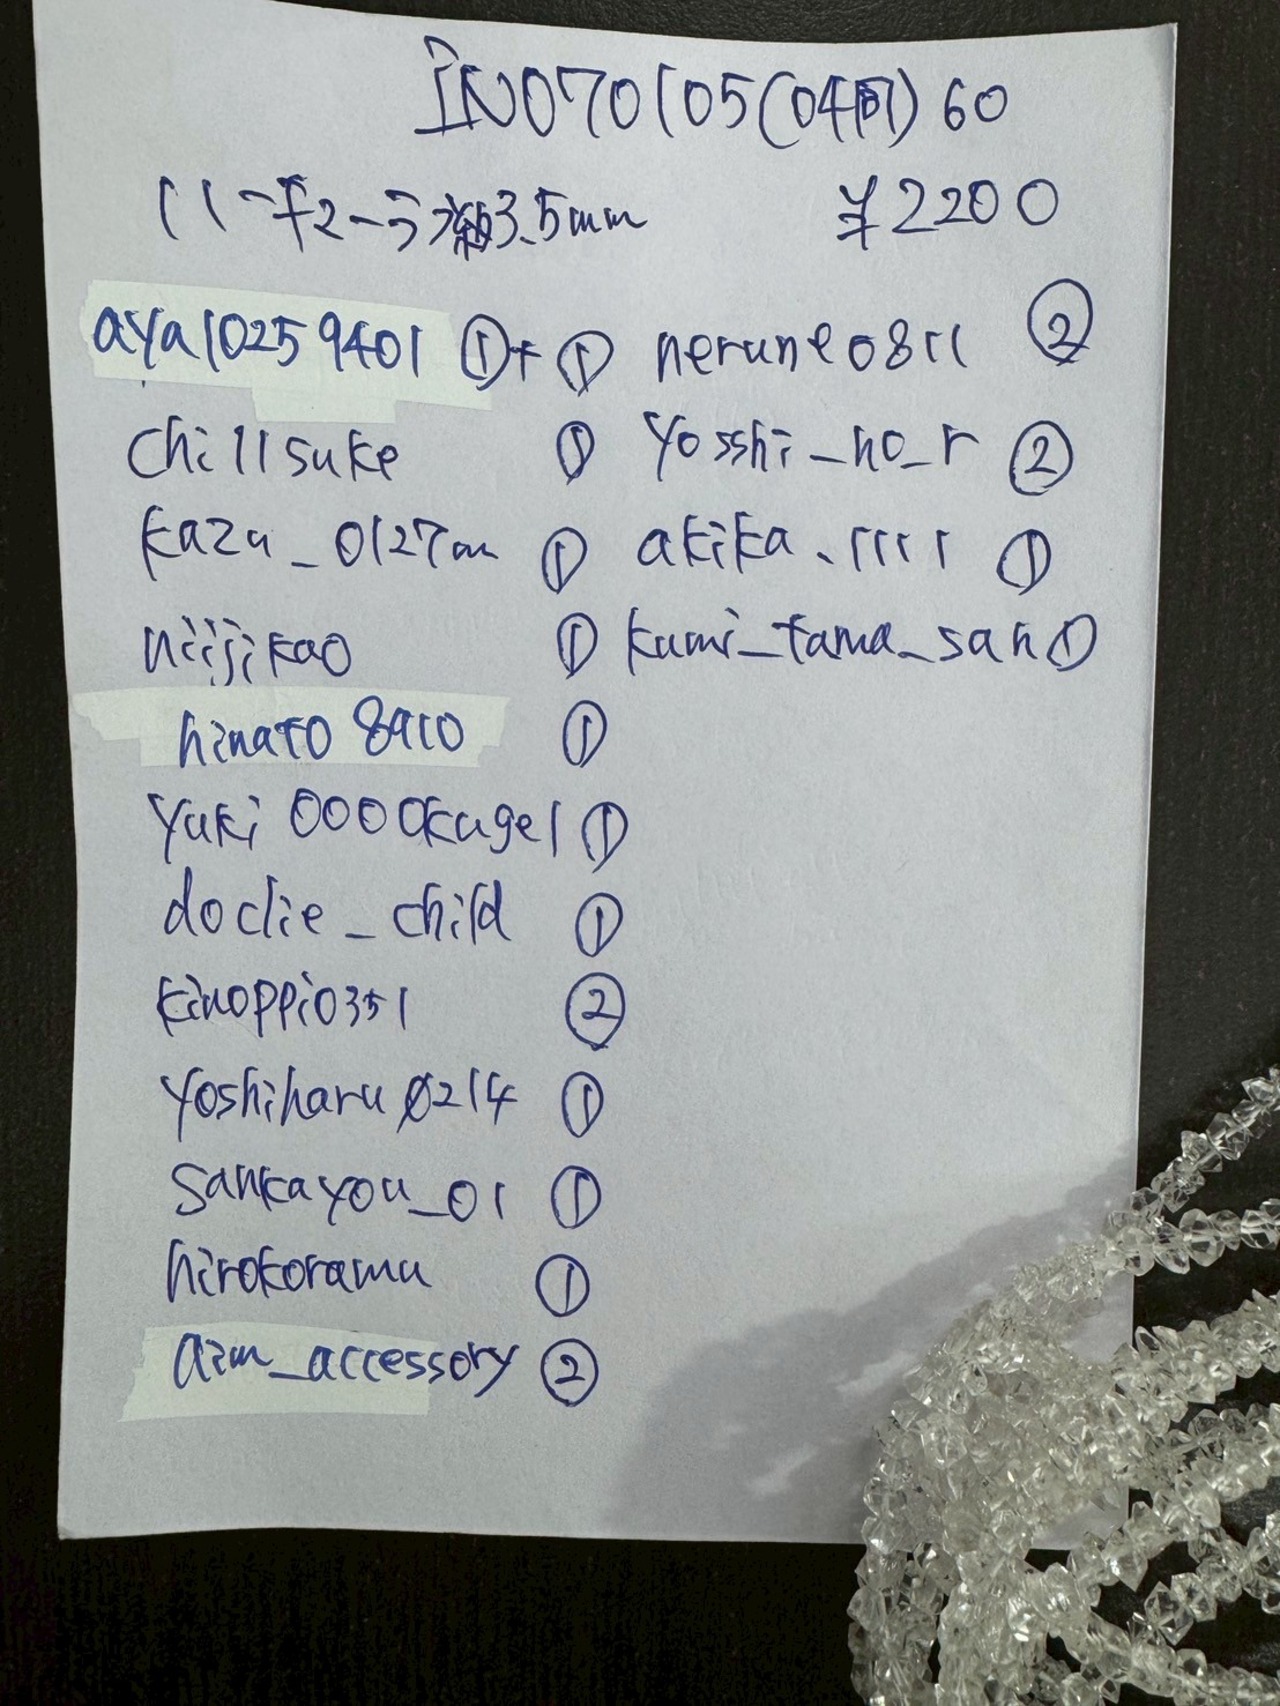 IN070105(04村)60
ハーキマーラフ細3.5mm ¥2200
aya10259401 ①+①
chillsuke ①
kazu_0127m ①
niijikao ①
hinato8910 ①
yuki0000kugel ①
doclie_child ①
kinoppi0351 ②
yoshiharu0214 ①
sankayou_01 ①
hirokoramu ①
aim_accessory ②
nerune0811 ②
yosshi_no_r ②
akika.rrrr ①
kumi_tama_san ①